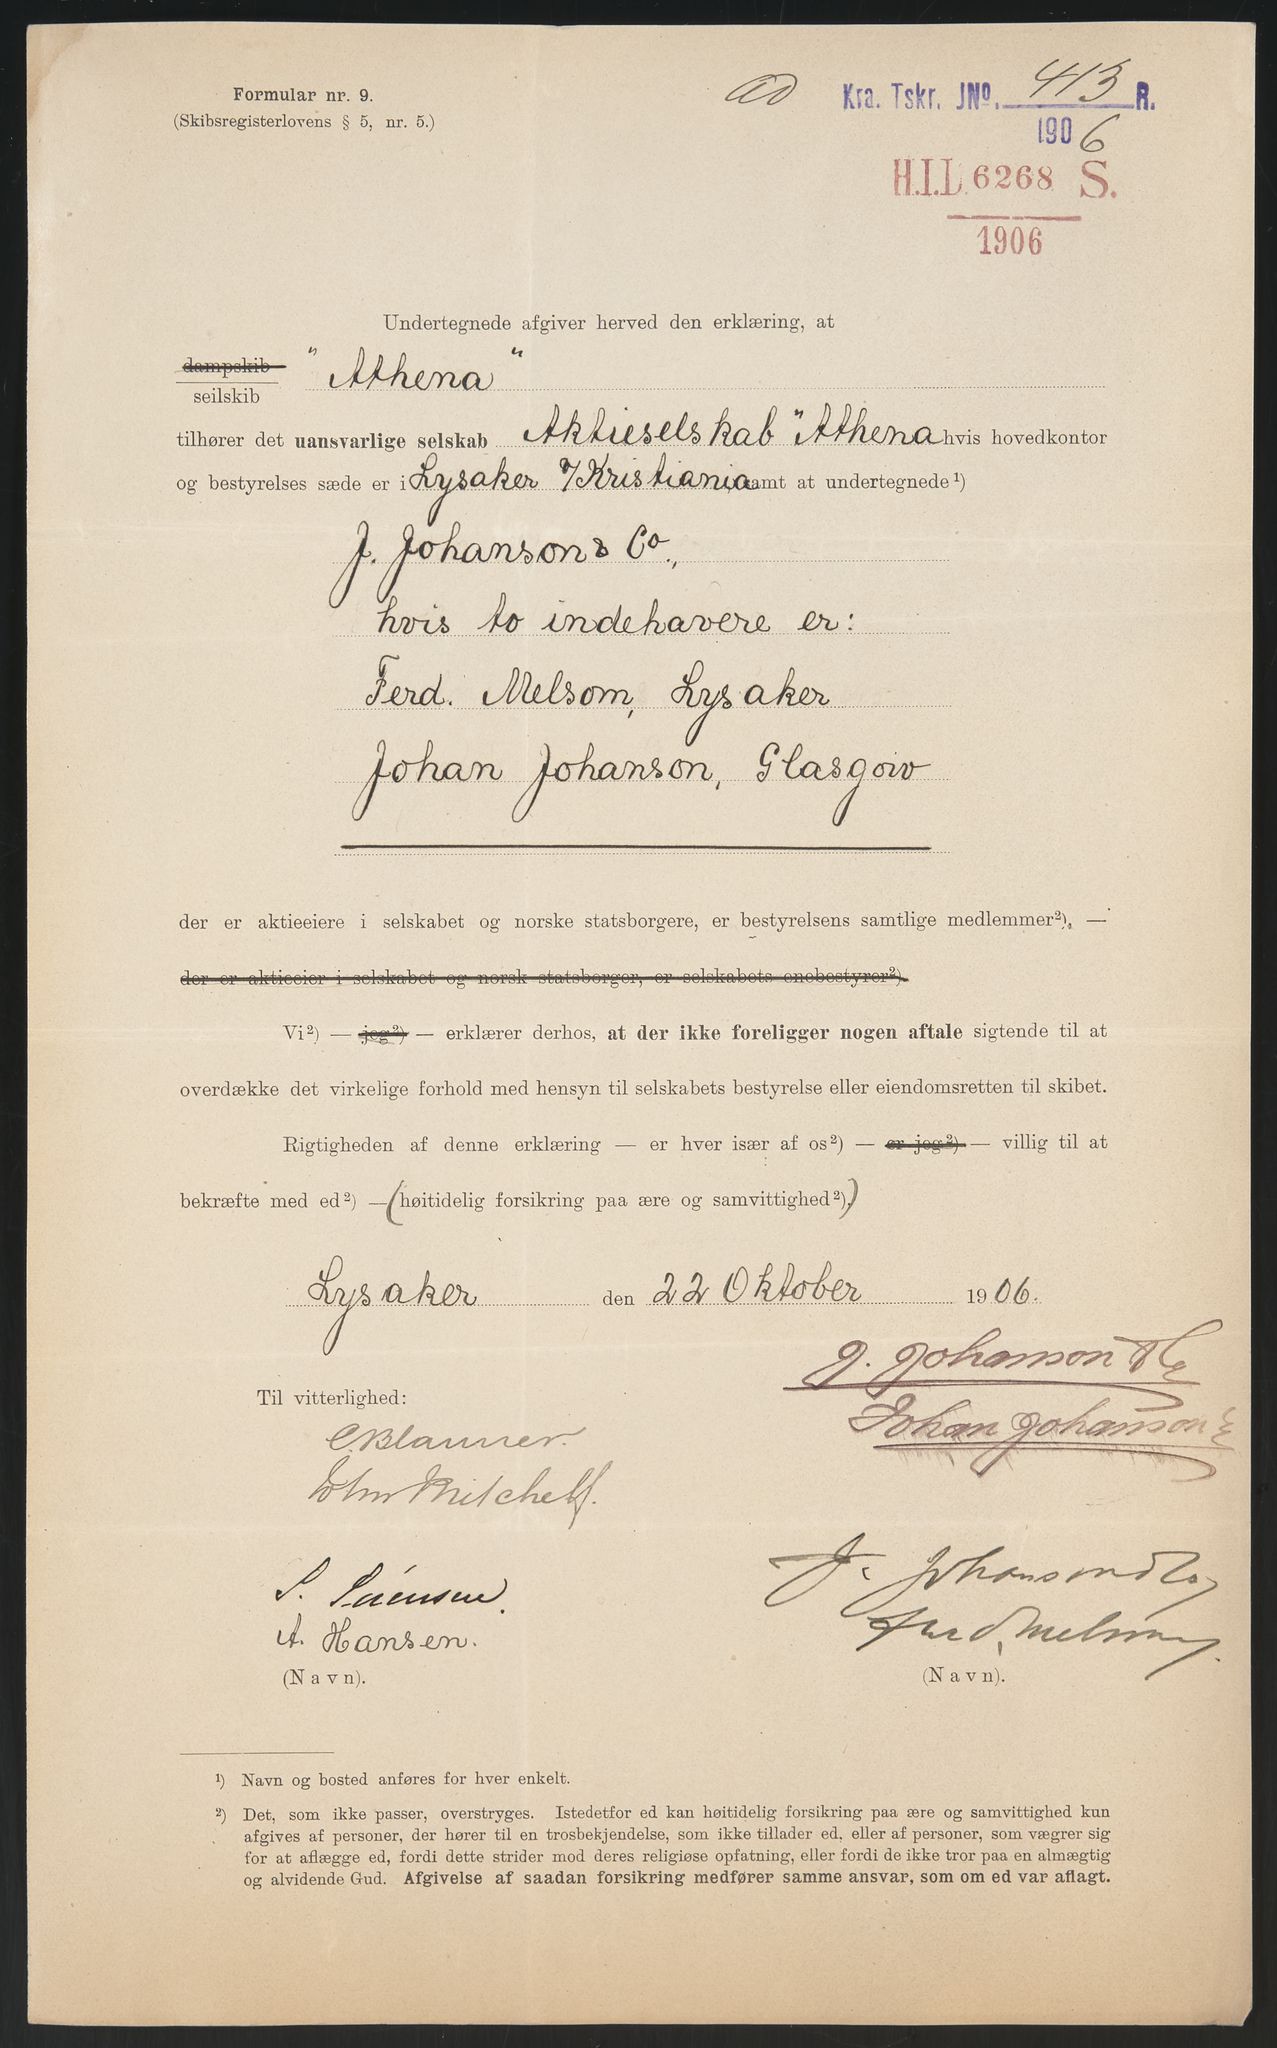 Formular nr. 9.
(Skibsregisterlovens § 5, nr. 5.)
ad Kra. Tskr. JNo. 413 R.
1906
H.I.L 6268 S.
1906
Undertegnede afgiver herved den erklæring, at
dampskib "Athena"
seilskib
tilhører det uansvarlige selskab Aktieselskab "Athena hvis hovedkontor
og bestyrelses sæde er i Lysaker %Kristiania samt at undertegnede ¹)
J. Johanson & Co.,
hvis to indehavere er:
Ferd. Melsom, Lysaker
Johan Johanson, Glasgow
der er aktieeiere i selskabet og norske statsborgere, er bestyrelsens samtlige medlemmer²), —
der er aktieeier i selskabet og norsk statsborger, er selskabets enebestyrer²).
Vi²) — jeg²) — erklærer derhos, at der ikke foreligger nogen aftale sigtende til at
overdække det virkelige forhold med hensyn til selskabets bestyrelse eller eiendomsretten til skibet.
Rigtigheden af denne erklæring — er hver især af os²) — er jeg²) — villig til at
bekræfte med ed²) — (høitidelig forsikring paa ære og samvittighed²).)
Lysaker den 22 Oktober 1906.
J. Johanson & Co
Til vitterlighed:
Johan Johanson
John Mitchell.
J. Johanson & Co
S. Sörensen.
Ferd. Melsom
A. Hansen.
(Navn). (Navn).
¹) Navn og bosted anføres for hver enkelt.
²) Det, som ikke passer, overstryges. Istedetfor ed kan høitidelig forsikring paa ære og samvittighed kun
afgives af personer, der hører til en trosbekjendelse, som ikke tillader ed, eller af personer, som vægrer sig
for at aflægge ed, fordi dette strider mod deres religiøse opfatning, eller fordi de ikke tror paa en almægtig
og alvidende Gud. Afgivelse af saadan forsikring medfører samme ansvar, som om ed var aflagt.